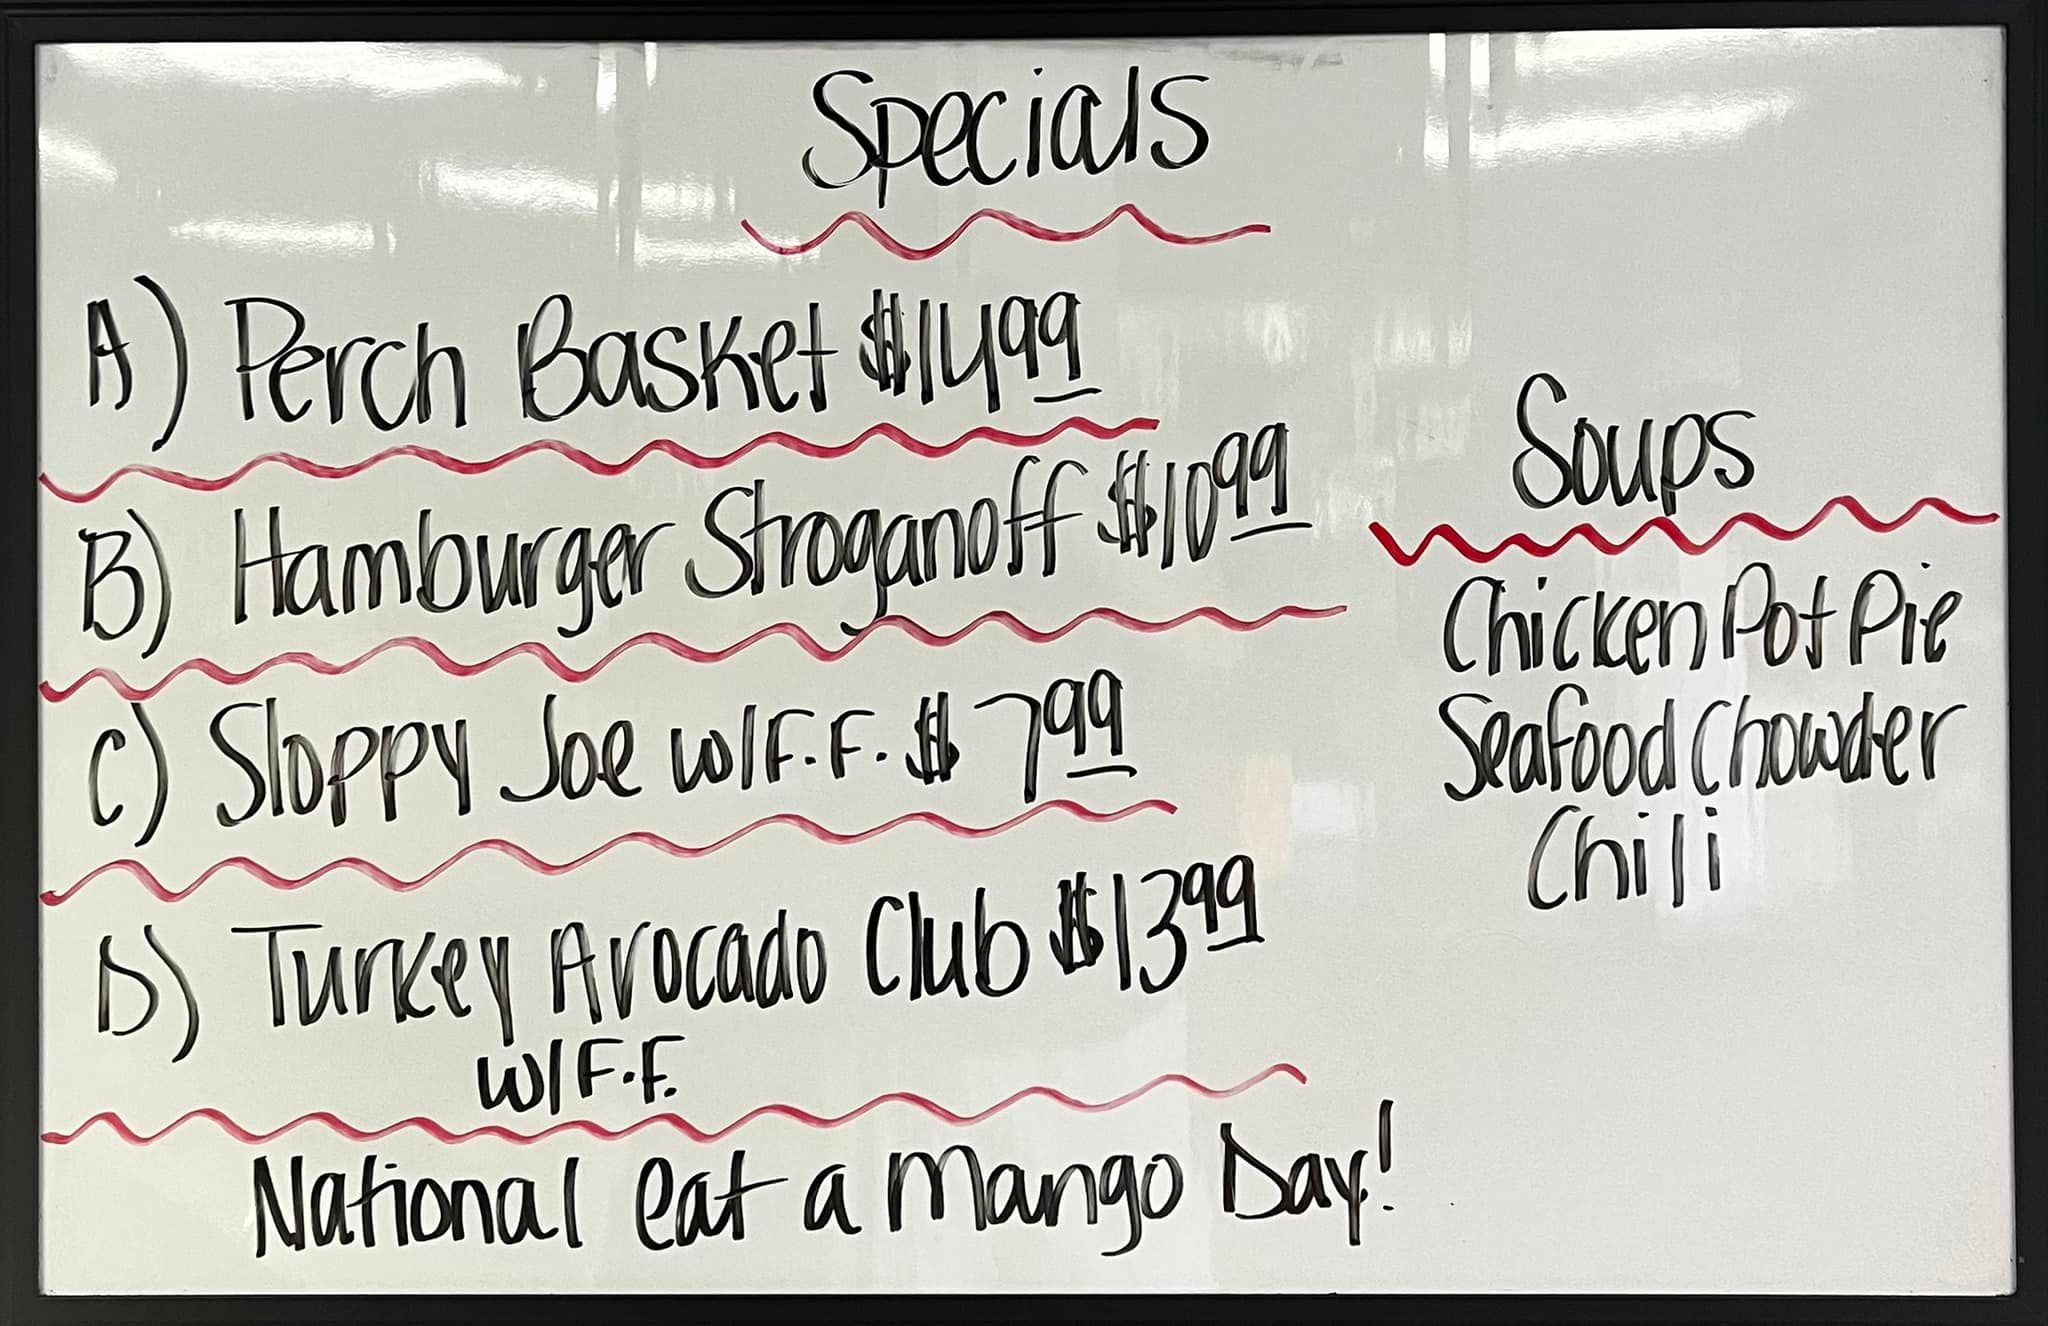 Specials
A) Perch Basket $14.99
B) Hamburger Stroganoff $10.99
C) Sloppy Joe W/F.F. $7.99
D) Turkey Avocado Club $13.99
W/F.F.
National eat a Mango Day!
Soups
Chicken Pot Pie
Seafood Chowder
Chili